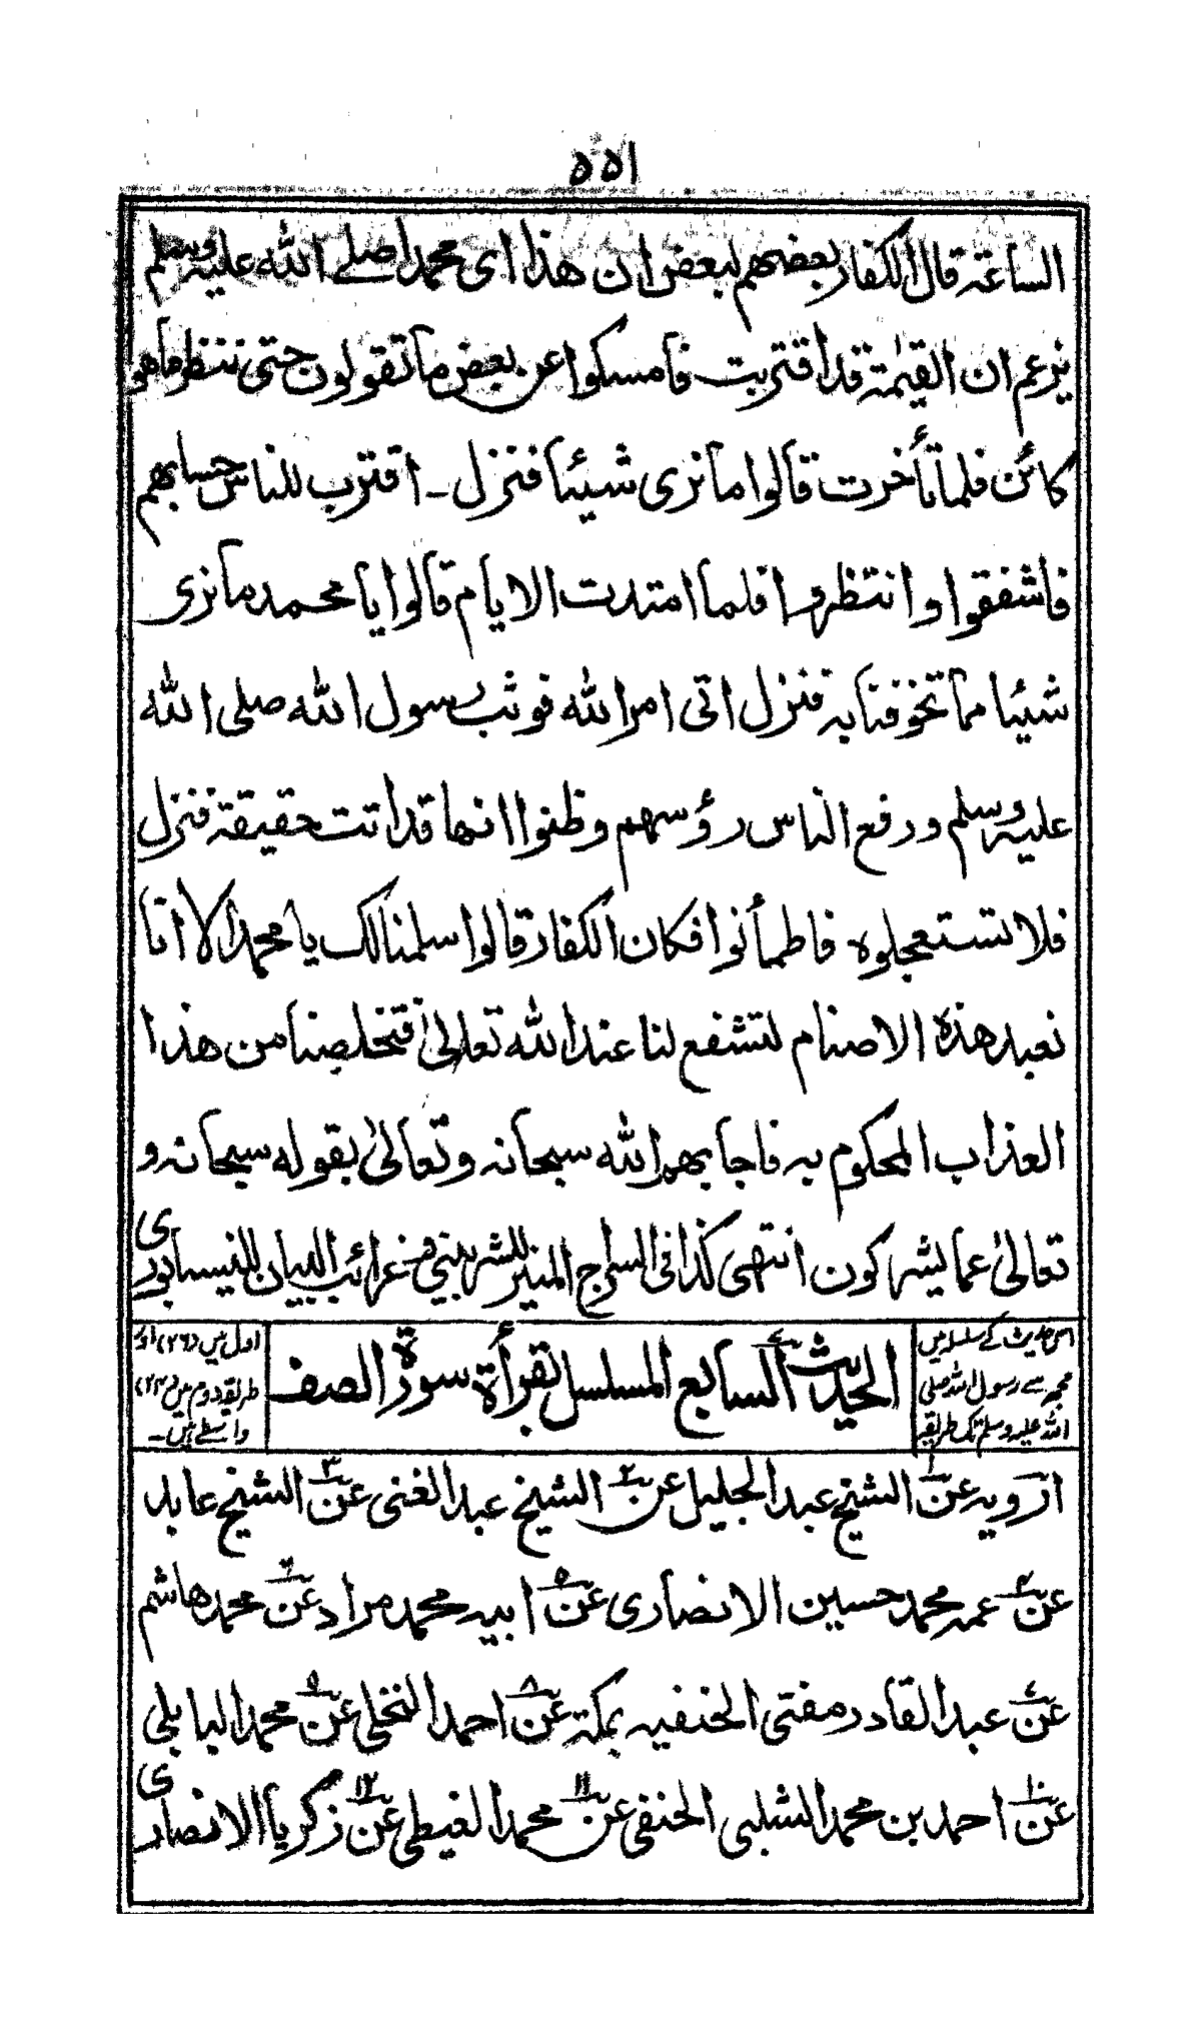 ۵۵۱
الساعة قال الكفار بعضهم لبعض ان هذا اى محمدا صلے الله عليه وسلم
يزعم ان القيٰمة قد اقتربت فامسكوا عن بعض ما تقولون حتى ننظر ما هو
كائن فلما تأخرت قالوا ما نرى شيئا فنزل ۔ اقترب للناس حسابهم
فاشفقوا وانتظروا فلما امتدت الايام قالوا يا محمد ما نرى
شيئا مما تخوفنا به فنزل اتى امر الله فوثب رسول الله صلى الله
عليه وسلم ورفع الناس رؤسهم وظنوا انها قد اتت حقيقة فنزل
فلا تستعجلوه فاطمأنوا فكان الكفار قالوا سلمنا لك يا محمد الا انا
نعبد هذه الاصنام لتشفع لنا عند الله تعالىٰ فتخلصنا من هذا
العذاب المحكوم به فاجابهم الله سبحانه وتعالىٰ بقوله سبحانه و
تعالىٰ عما يشركون انتهى كذا فى السراج المنير للشربينى وغرائب البيان للنيسابورى
اس حدیث کے سلسلہ میں
مجھ سے رسول اللہ صلی
اللہ علیہ وسلم تک طریقہ
الحديث السابع المسلسل بقرأة سورة الصف
اول میں (۲۶) اور
طریقہ دوم میں (۲۳)
واسطے ہیں۔
ارويه عن۱ الشيخ عبد الجليل عن۲ الشيخ عبد الغنى عن۳ الشيخ عابد
عن۴ عمه محمد حسين الانصارى عن۵ ابيه محمد مراد عن۶ محمد هاشم
عن۷ عبد القادر مفتى الحنفيه بمكة عن۸ احمد النخلى عن۹ محمد البابلى
عن۱۰ احمد بن محمد الشلبى الحنفى عن۱۱ محمد الغيطى عن۱۲ زكريا الانصارى